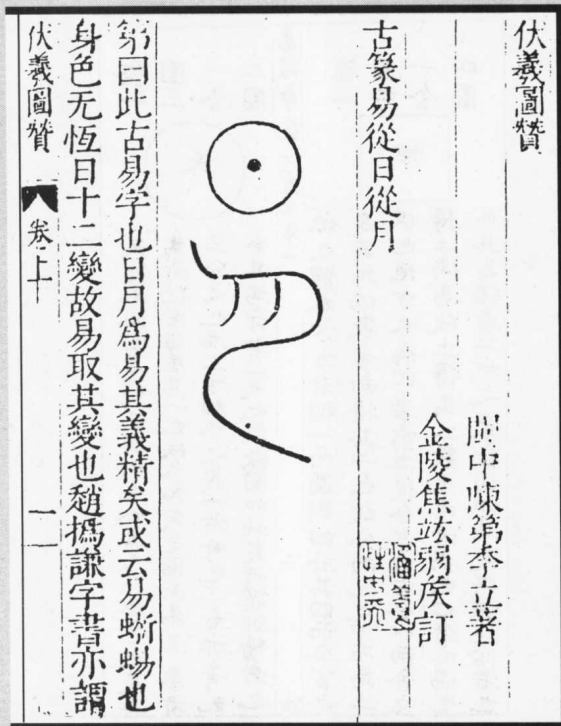 伏羲圖贊
閩中陳第季立著
金陵焦竑弱矦訂
古篆易從日從月
第曰此古易字也日月爲易其義精矣或云易蜥蜴也
身色无恆日十二變故易取其變也趙撝謙字書亦謂
伏羲圖贊
卷上
一